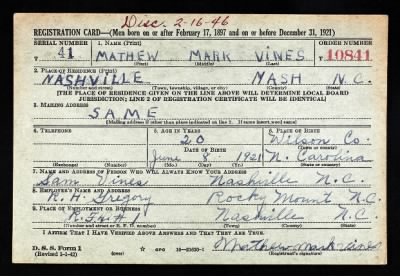 Disc. 2-16-46
REGISTRATION CARD—(Men born on or after February 17, 1897 and on or before December 31, 1921)
SERIAL NUMBER 1. NAME (Print) ORDER NUMBER
T 41 MATHEW MARK VINES T 10841
2. PLACE OF RESIDENCE (Print)
NASHVILLE NASH N.C.
(Number and street) (Town, township, village, or city) (County) (State)
[THE PLACE OF RESIDENCE GIVEN ON THE LINE ABOVE WILL DETERMINE LOCAL BOARD
JURISDICTION; LINE 2 OF REGISTRATION CERTIFICATE WILL BE IDENTICAL]
3. MAILING ADDRESS
SAME
[Mailing address if other than place indicated on line 2. If same insert word same]
4. TELEPHONE 5. AGE IN YEARS 6. PLACE OF BIRTH
20 Wilson Co.
DATE OF BIRTH (Town or county)
June 8 1921 N. Carolina
(Exchange) (Number) (Mo.) (Day) (Yr.) (State or country)
7. NAME AND ADDRESS OF PERSON WHO WILL ALWAYS KNOW YOUR ADDRESS
Sam Vines Nashville N.C.
8. EMPLOYER'S NAME AND ADDRESS
R. H. Gregory Rocky Mount N.C.
9. PLACE OF EMPLOYMENT OR BUSINESS
Nashville N.C.
(Number and street or R. F. D. number) (Town) (County) (State)
I AFFIRM THAT I HAVE VERIFIED ABOVE ANSWERS AND THAT THEY ARE TRUE.
D. S. S. Form 1
(Revised 1-1-42) (over) Mathew Mark Vines